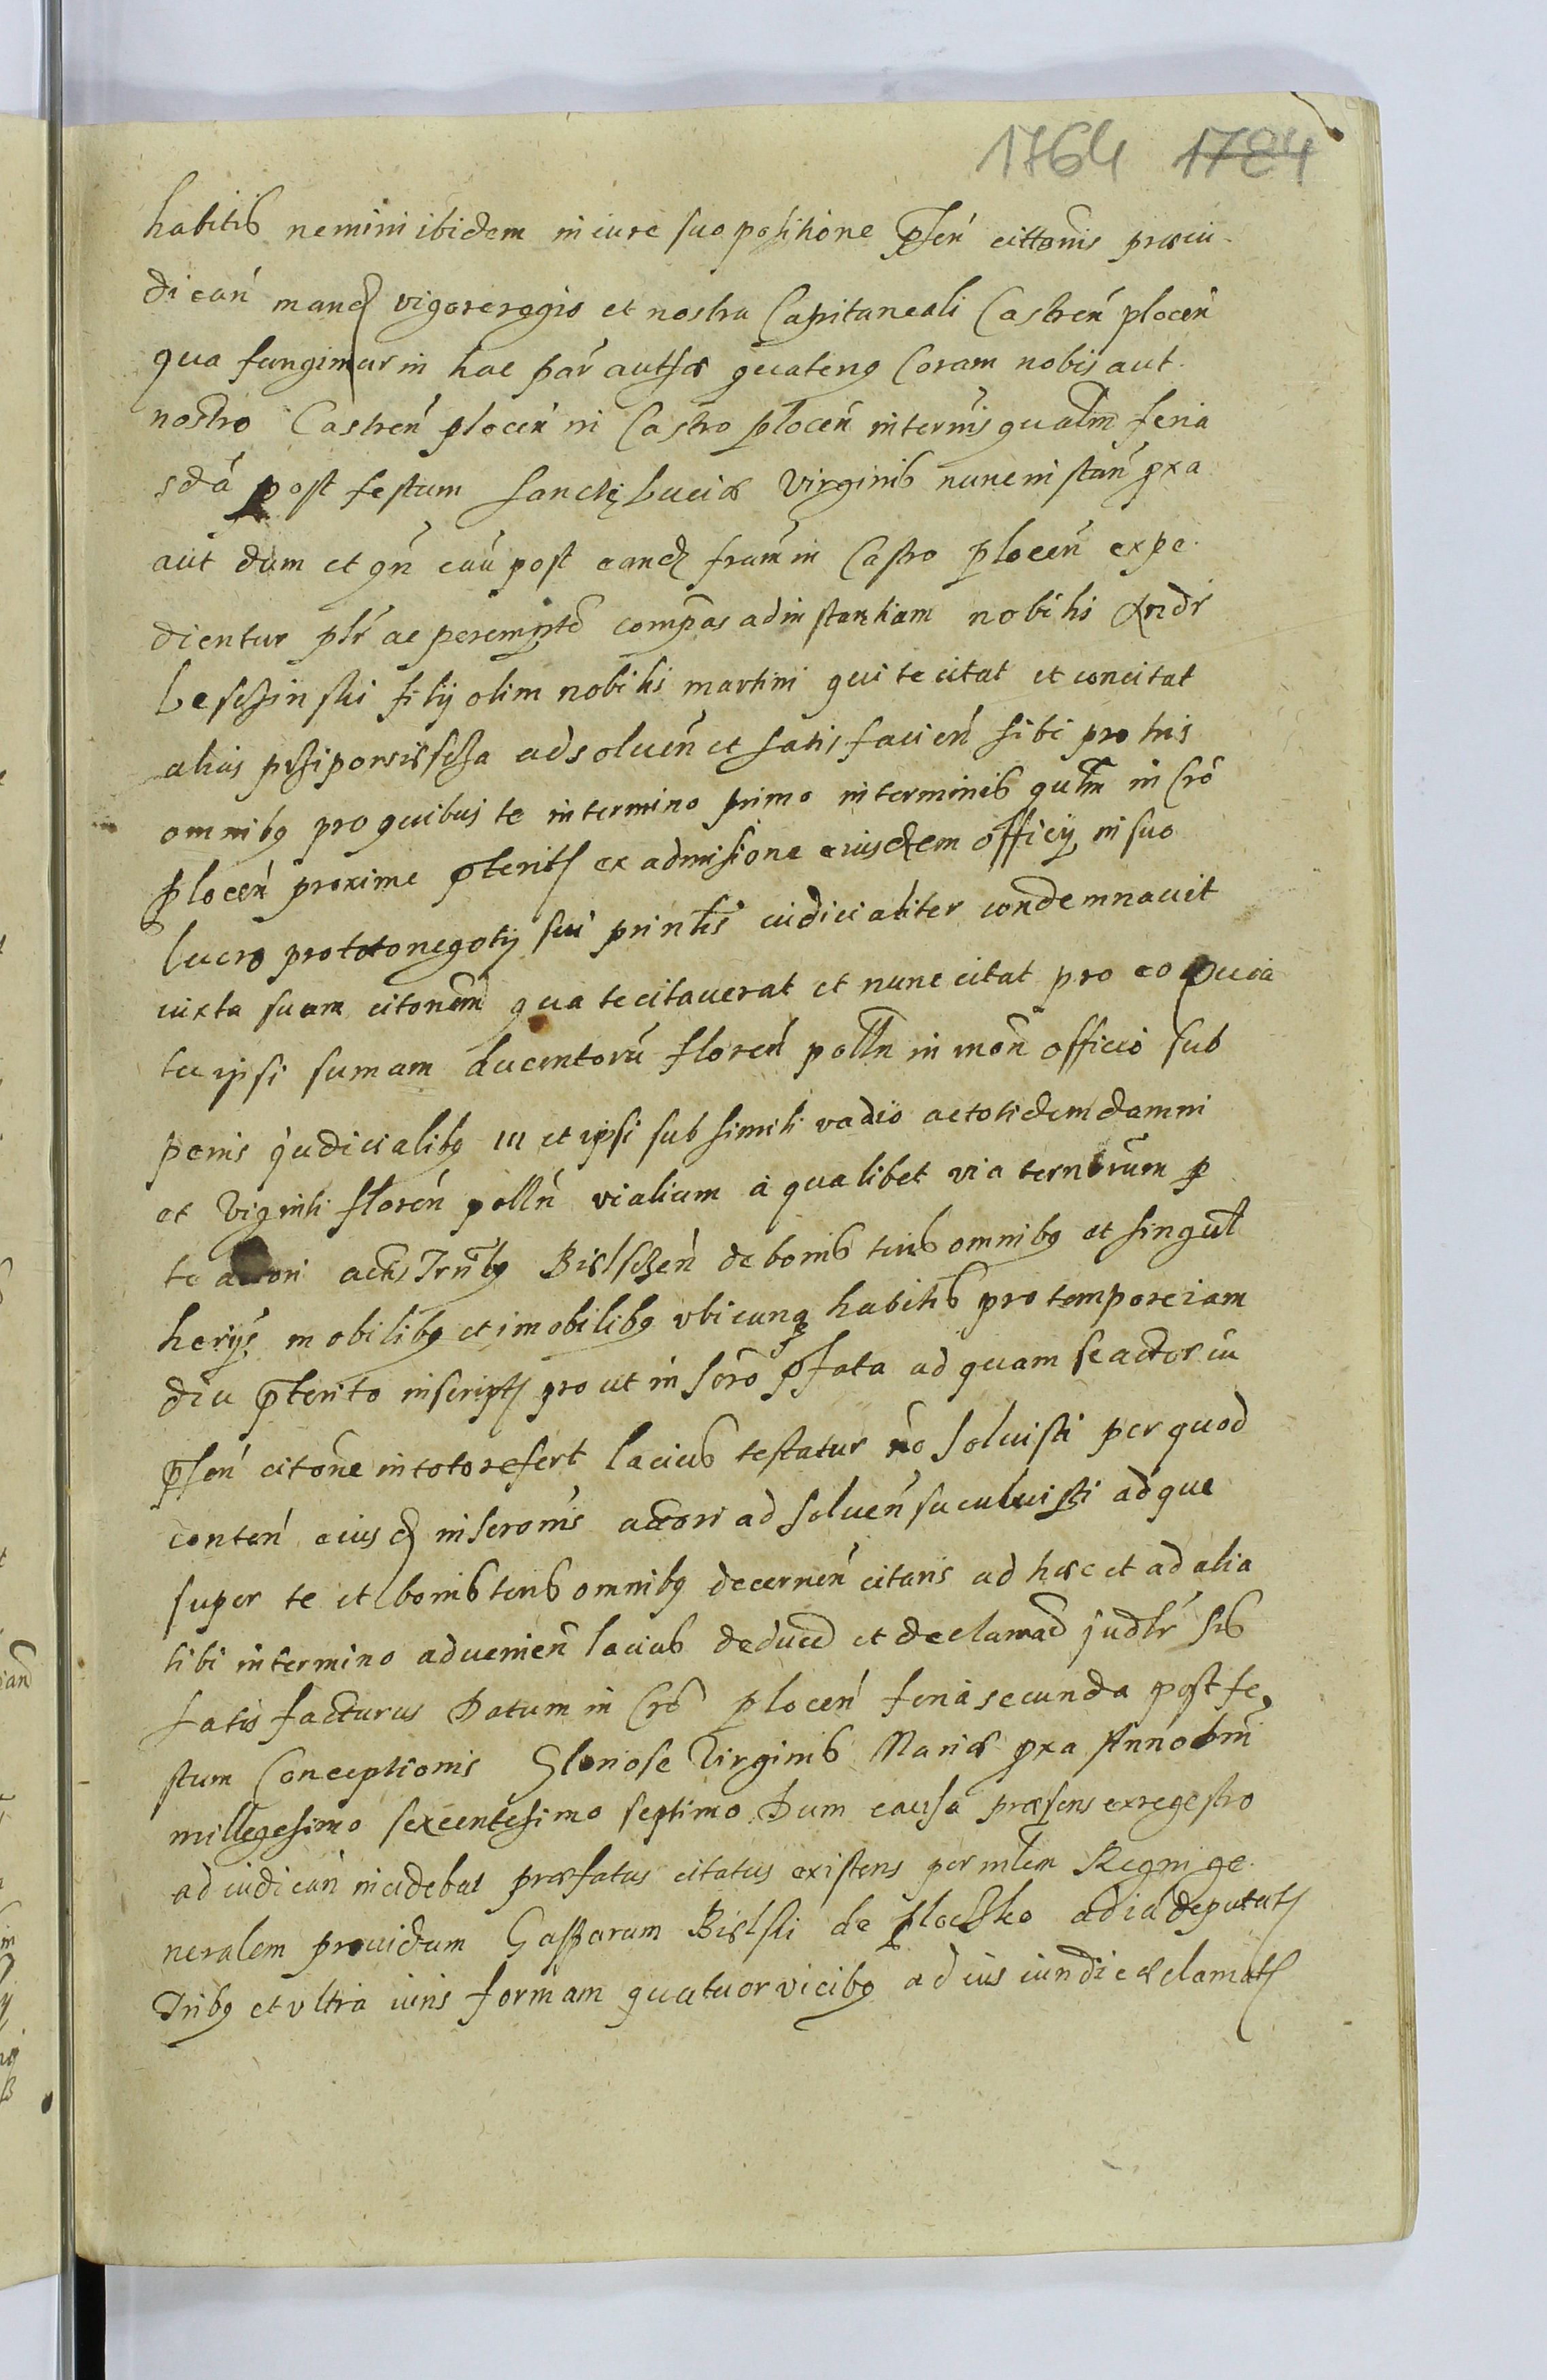 1764 1784
habitis nemini ibidem in iure suo positione pn̄ten cittonis præiu-
dican mand vigore regio et nostra Capitaneali Castren plocen
qua fungimur in hac par autha quateng Coram nobis aut
nostro Castren plocen in Castro plocen in termis qualm feria
sda post festum sanctę Lucia Virginis nunc instan pxa
aut dum et qn cau post eand fram in Castro plocen expe-
dientur plr ac peremptō compas ad instantiam nobilis Andr
filij olim nobilis martini qui te citat et concitat
alias ad soluen et satisfacien sibi pro his
omnibg pro quibus te in termino primo in terminis qulm in Crō
plocen proxime pterit ex admissione eiusdem officij in suo
lucro pro toto negotij sui prinlis iudicialiter condemnauit
iuxta suam citonem qua te citauerat et nunc citat pro eo quia
tu ipsi sumam ducentorū floren polln in mon officio sub
penis judicialibg III et ipsi sub simili vadio ac totidem damni
et viginti floren polln vialium a qualibet via ternorum p
te actori de bonis tuis omnibg et singul
herijs mobilibg et imobilibg vbicunq habitis pro tempore iam
diu pterito inscript pro ut in scrō pfata ad quam se actor in
pn̄sen citone in toto refert lacius testatur nō soluisti per quod
conten eiusd inscronis actori ad soluen sucubuisti ad que
super te et bonis tuis omnibg decernen citaris ad hæc et ad alia
tibi in termino aduenien lacius deducd et declarand judlr sis
satisfacturus Datum in Crō plocen feria secunda post fe-
stum Conceptionis Gloriose Virginis Mariæ pxa Anno dni
millegesimo sexcentesimo septimo Dum causa præsens ex regestro
ad iudican incidebat præfatus citatus existens per mlem Regni ge-
neralem prouidum Gasparum Bielski de ploczko ad id deputat
Tribg et vltra iuris formam quatuor vicibg ad ius iundic acclamat